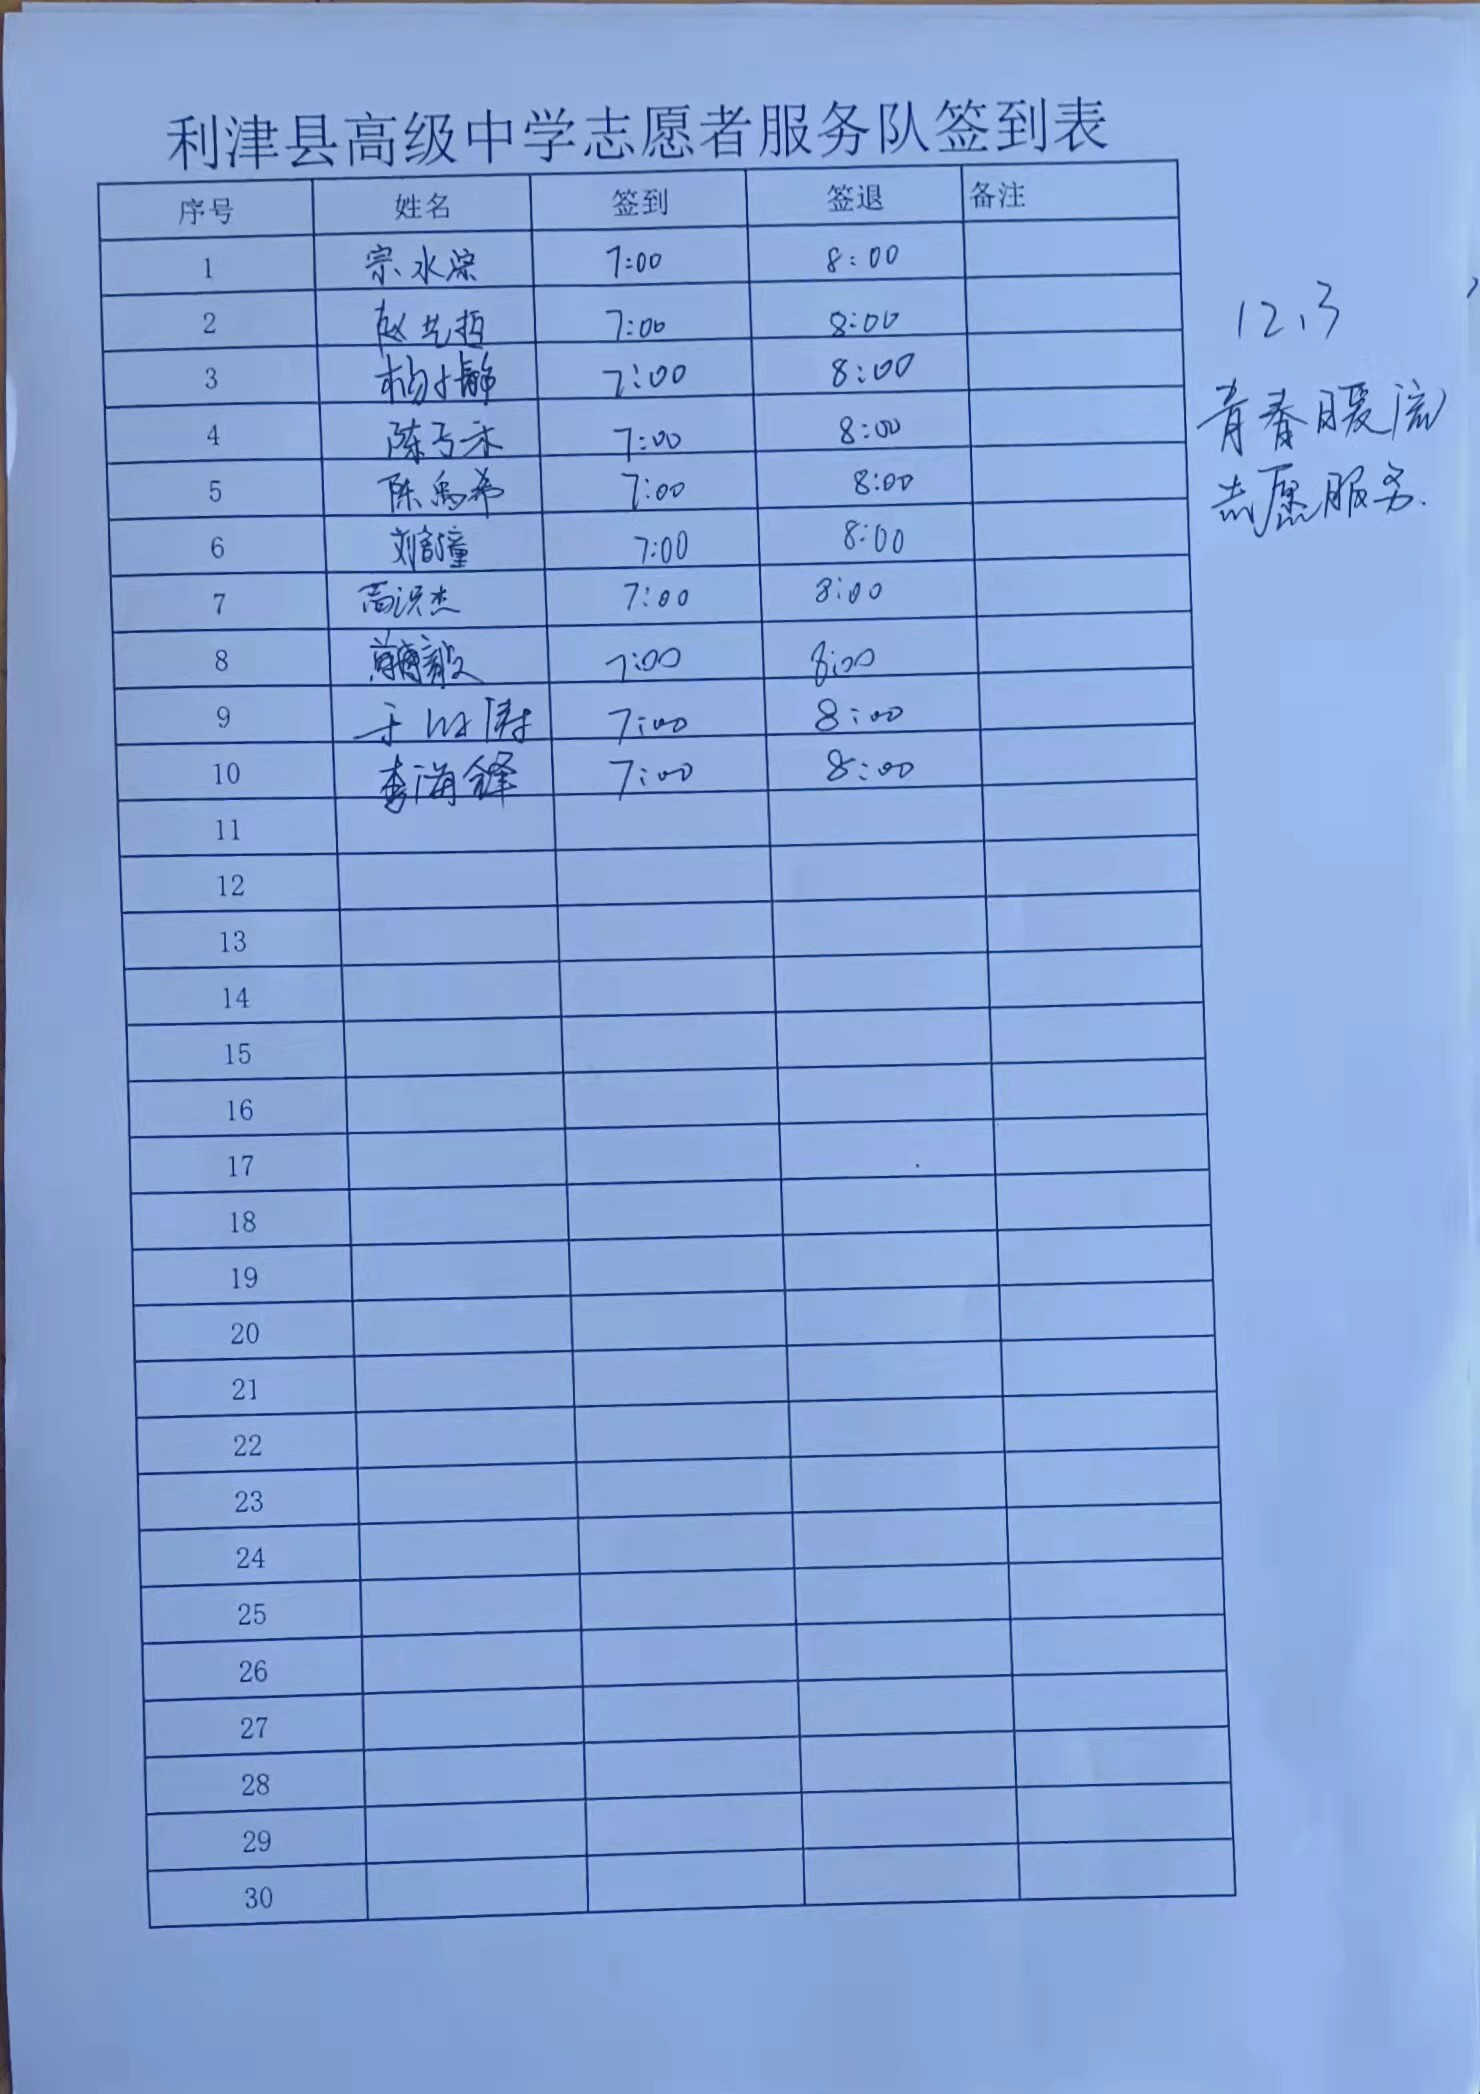 利津县高级中学志愿者服务队签到表
序号 姓名 签到 签退 备注
1 宗水淙 7:00 8:00
2 赵先哲 7:00 8:00
3 杨静 7:00 8:00
4 陈 7:00 8:00
5 陈禹希 7:00 8:00
6 刘童 7:00 8:00
7 高洪杰 7:00 8:00
8 7:00 8:00
9 于涛 7:00 8:00
10 李海锋 7:00 8:00
11
12
13
14
15
16
17
18
19
20
21
22
23
24
25
26
27
28
29
30
12、3
青春暖流
志愿服务.